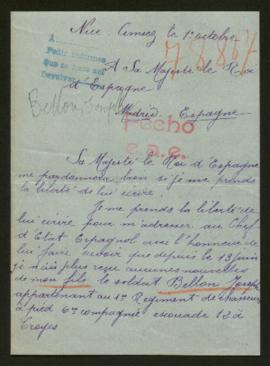 Nice Cimiez le 1r octobre
78867
A
Pedir informes
que se pase así
Devolver
A Sa Majesté le Roi
d'Espagne
Bellon, Joseph
Madrid, Espagne
Fecho
Sa Majesté le Roi d'Espagne
me pardonnera bien si je me prends
la liberté de lui écrire.
Je me prends la liberté de
lui écrire pour m'adresser au Chef
d'Etat Espagnol avec l'honneur de
lui faire savoir que depuis le 13 juin
je n'ai plus reçu aucunes nouvelles
de mon fils le soldat Bellon Joseph
appartenant au 1r Régiment de chasseurs
à pied 6e compagnie escouade 12 à
Troyes